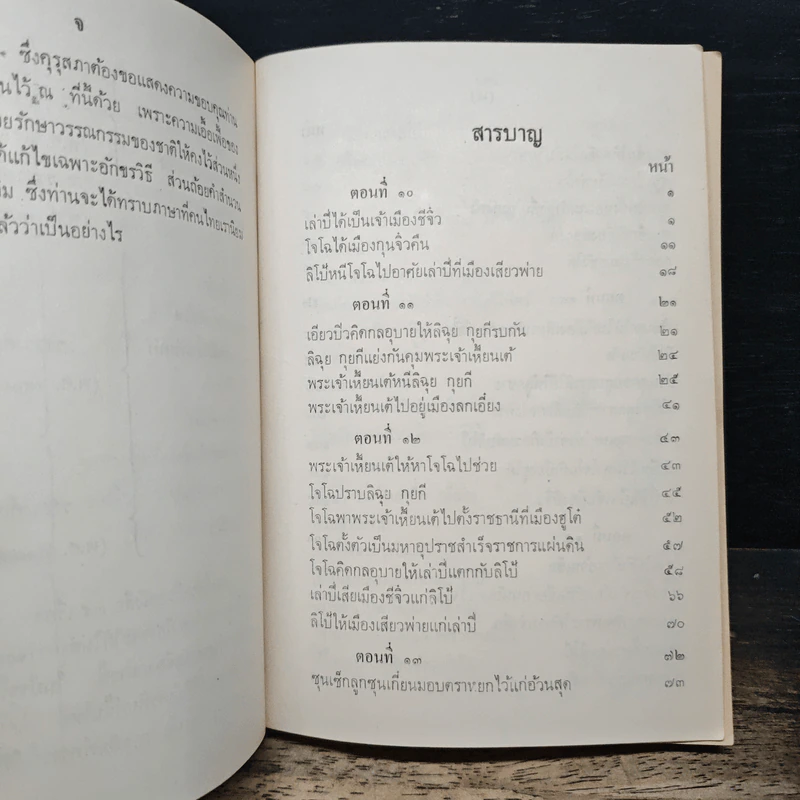 จ
ซึ่งคุรุสภาต้องขอแสดงความขอบคุณท่าน
นไว้ ณ ที่นี้ด้วย เพราะความเอื้อเฟื้อของ
ยรักษาวรรณกรรมของชาติให้คงไว้ส่วนหนึ่ง
ด้แก้ไขเฉพาะอักขรวิธี ส่วนถ้อยคำสำนวน
ม ซึ่งท่านจะได้ทราบภาษาที่คนไทยเรานิยม
ล้วว่าเป็นอย่างไร
สารบาญ
หน้า
ตอนที่ ๑๐ ๑
เล่าปี่ได้เป็นเจ้าเมืองชีจิ๋ว ๑
โจโฉได้เมืองกุนจิ๋วคืน ๑๑
ลิโป้หนีโจโฉไปอาศัยเล่าปี่ที่เมืองเสียวพ่าย ๑๘
ตอนที่ ๑๑ ๒๑
เอียวปิวคิดกลอุบายให้ลิฉุย กุยกีรบกัน ๒๑
ลิฉุย กุยกีแย่งกันคุมพระเจ้าเหี้ยนเต้ ๒๔
พระเจ้าเหี้ยนเต้หนีลิฉุย กุยกี ๒๕
พระเจ้าเหี้ยนเต้ไปอยู่เมืองลกเอี๋ยง ๔๑
ตอนที่ ๑๒ ๔๓
พระเจ้าเหี้ยนเต้ให้หาโจโฉไปช่วย ๔๓
โจโฉปราบลิฉุย กุยกี ๔๕
โจโฉพาพระเจ้าเหี้ยนเต้ไปตั้งราชธานีที่เมืองฮูโต๋ ๕๒
โจโฉตั้งตัวเป็นมหาอุปราชสำเร็จราชการแผ่นดิน ๕๗
โจโฉคิดกลอุบายให้เล่าปี่แตกกับลิโป้ ๕๘
เล่าปี่เสียเมืองชีจิ๋วแก่ลิโป้ ๖๖
ลิโป้ให้เมืองเสียวพ่ายแก่เล่าปี่ ๗๐
ตอนที่ ๑๓ ๗๒
ซุนเซ็กลูกซุนเกี๋ยนมอบตราหยกไว้แก่อ้วนสุด ๗๓